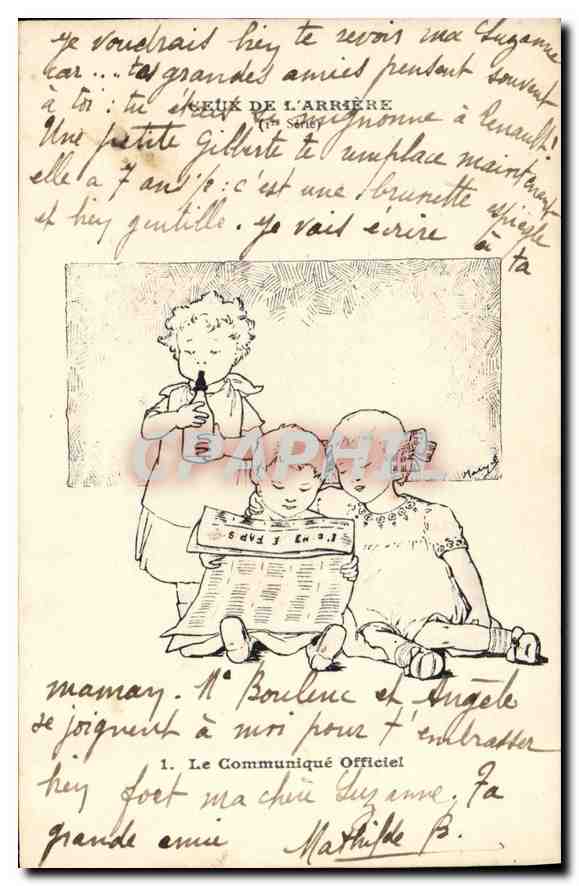 Je voudrais bien te revoir ma Suzanne
car... tes grandes amies pensent souvent
CEUX DE L'ARRIÈRE
à toi : tu étais si mignonne à Renault!
(1re Série)
Une petite Gilberte te remplace maintenant
elle a 7 ans ½ : c'est une brunette espiègle
et bien gentille. Je vais écrire à ta
CPAPHIL.COM
Mary
maman. Me Boulenc et Angèle
se joignent à moi pour t'embrasser
1. Le Communiqué Officiel
bien fort ma chère Suzanne. Ta
grande amie Mathilde B.